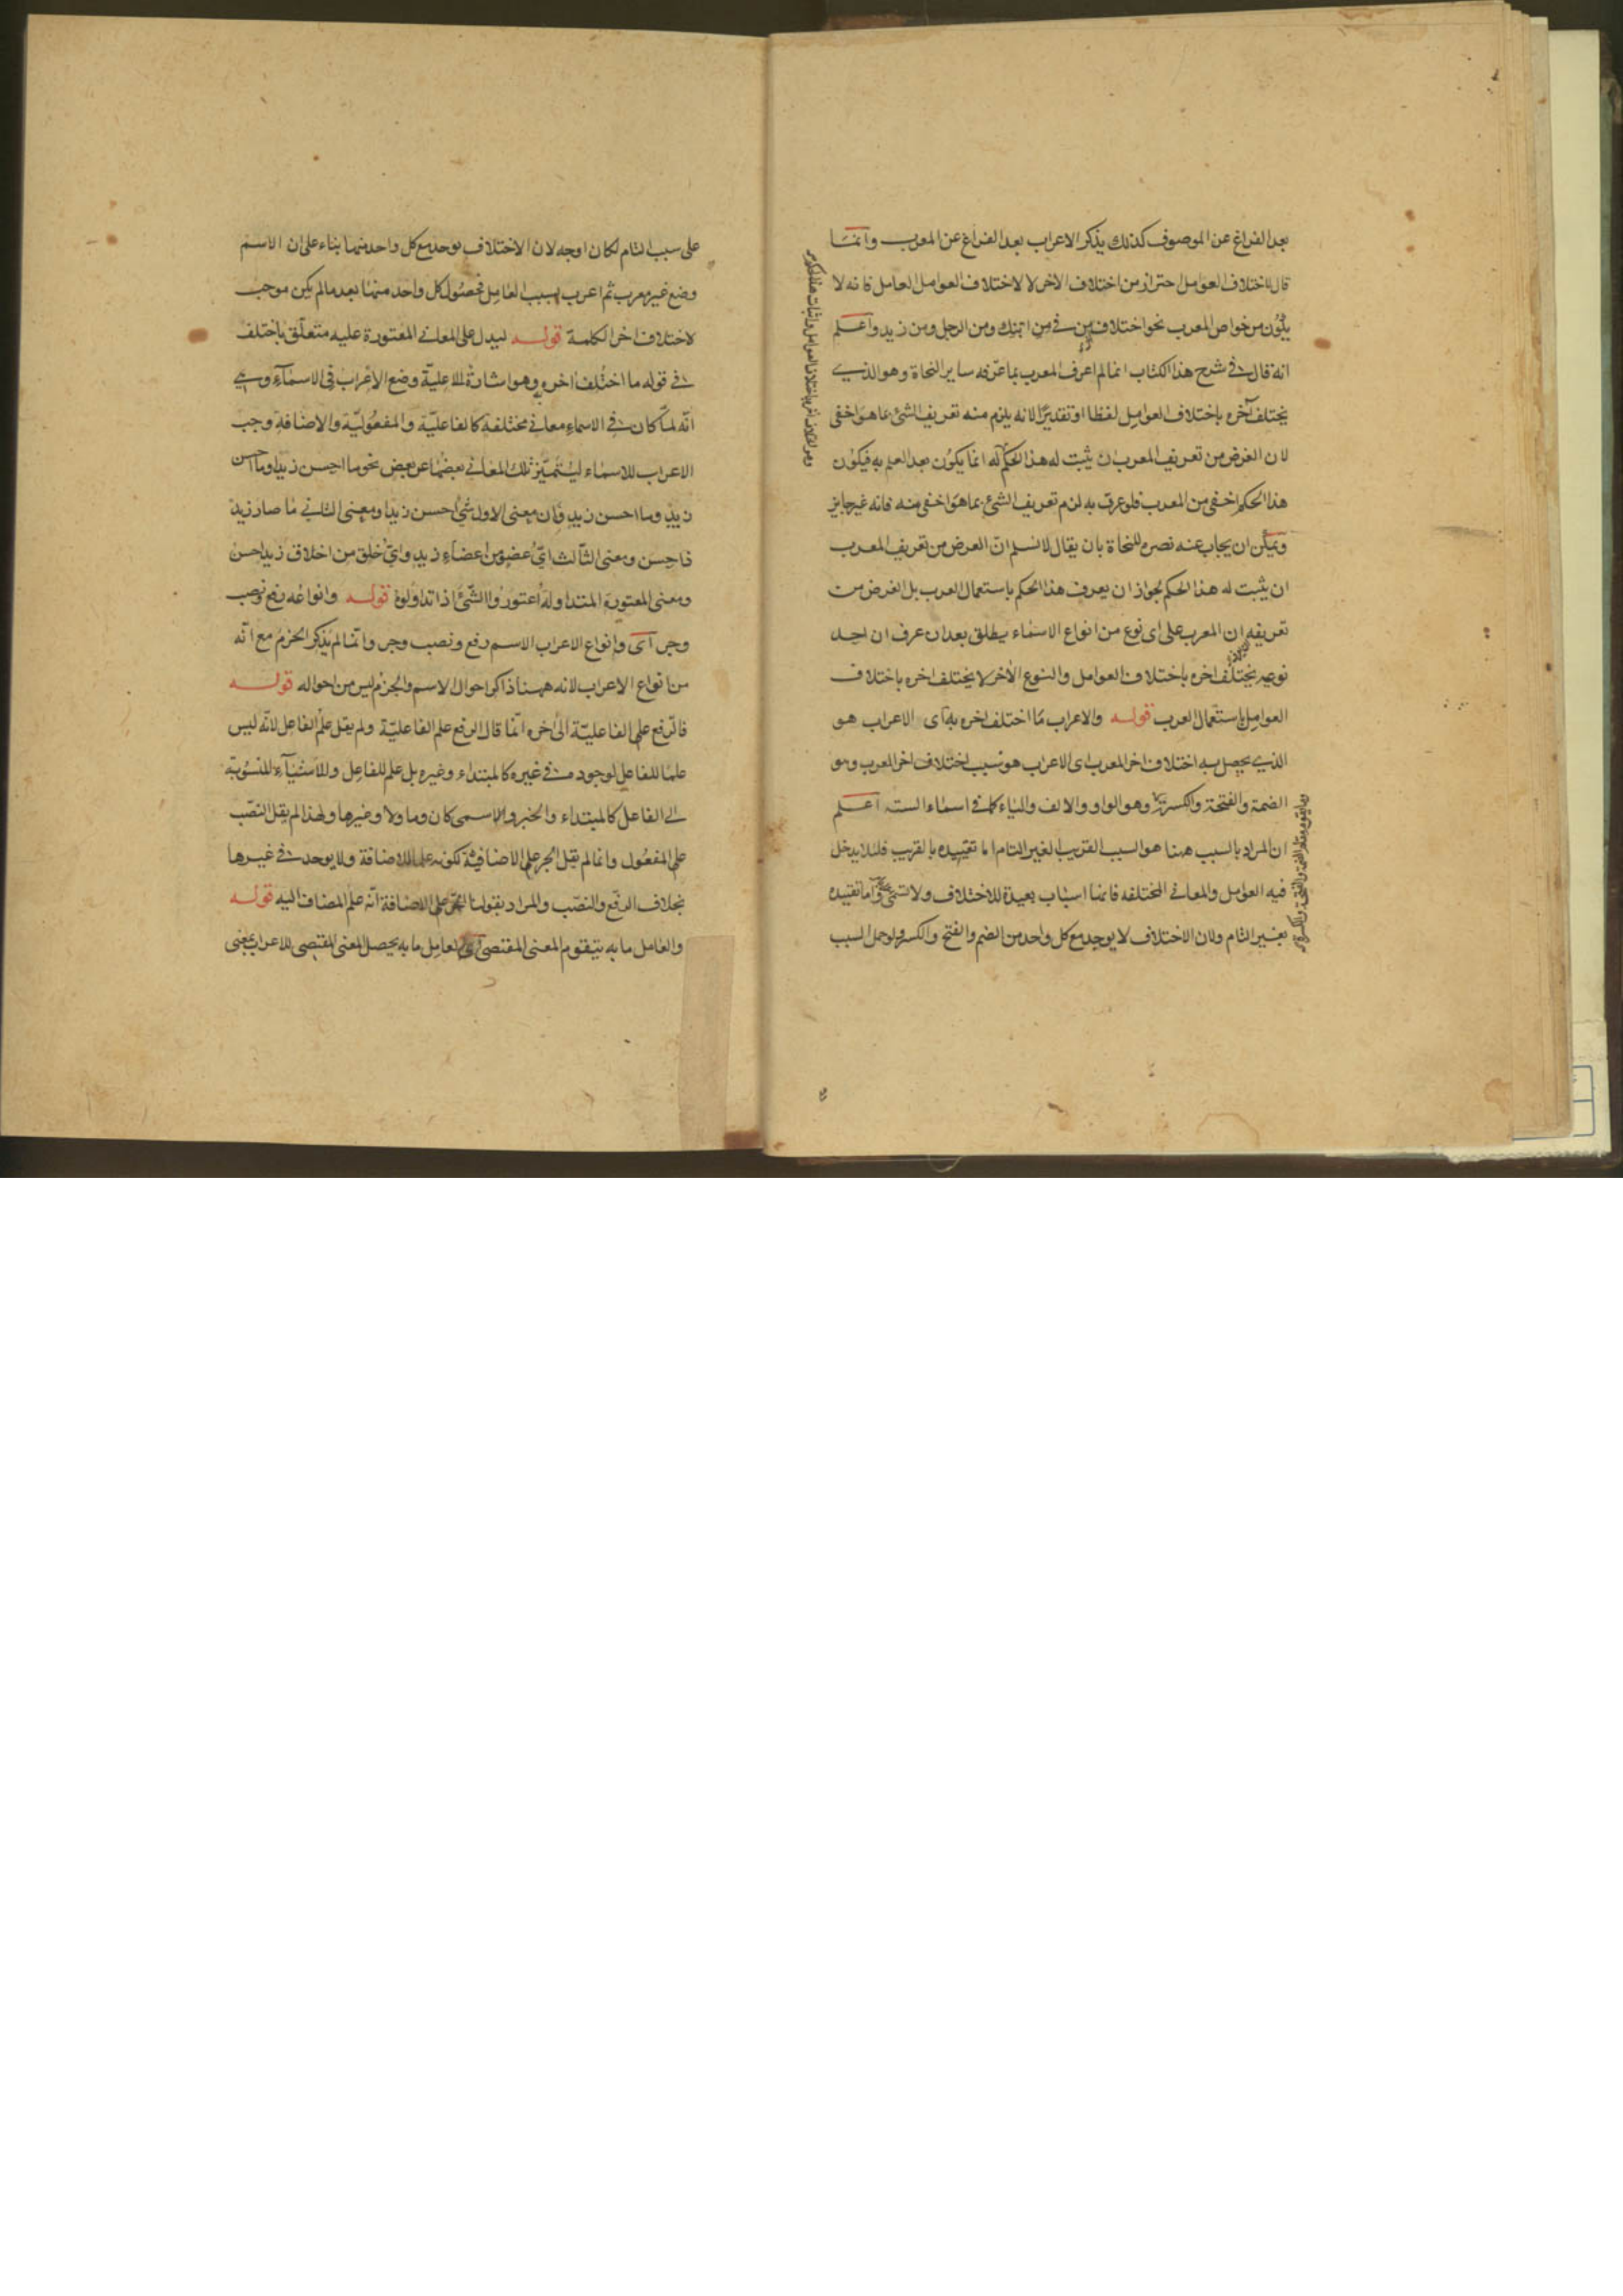 بعد الفراغ عن الموصوف كذلك يذكر الاعراب بعد الفراغ عن المعرب وانما
قال باختلاف العوامل احتراز من اختلاف الاخر لا لاختلاف العوامل لعامل فانه لا
يكون من خواص المعرب نحو اختلاف من في من ابنك ومن الرجل ومن زيد واعلم
انه قال في شرح هذا الكتاب انما لم اعرف المعرب بما عرفه ساير النحاة وهو الذي
يختلف آخره باختلاف العوامل لفظا او تقديرًا لانه يلزم منه تعريف الشئ بما هو اخفى
لان الغرض من تعريف المعرب ان يثبت له هذا الحكم لانه انما يكون بعد العلم به فيكون
هذا الحكم اخفى من المعرب فلو عرف به لزم تعريف الشئ بما هو اخفى منه فانه غير جايز
ويمكن ان يجاب عنه نصرة للنحاة بان يقال لا نسلم ان الغرض من تعريف المعرب
ان يثبت له هذا الحكم لجواز ان يعرف هذا الحكم باستعمال العرب بل الغرض من
تعريفه ان المعرب على اى نوع من انواع الاسماء يطلق بعد ان عرف ان احد
نوعيه يختلف اخره باختلاف العوامل والنوع الاخر لا يختلف اخره باختلاف
العوامل باستعمال العرب قوله والاعراب ما اختلف اخره به آى الاعراب هو
الذي يحصل به اختلاف اخر المعرب اى الاعراب هو سبب اختلاف اخر المعرب وهو
الضمة والفتحة والكسرة وهو الواو والالف والياء كما في اسماء الستة اعلم
ان المراد بالسبب ههنا هو السبب القريب الغير التام اما تقييده بالقريب فلئلا يدخل
فيه العوامل والمعاني المختلفه فانها اسباب بعيدة للاختلاف ولا تسمى واما تقييده
بغير التام ولان الاختلاف لا يوجد مع كل واحد من الضم والفتح والكسر ولو حمل السبب
على سبب التام لكان اوجه لان الاختلاف يوجد مع كل واحد منهما بناء على ان الاسم
وضع غير معرب ثم اعرب بسبب العامل فحصول كل واحد منهما بعد ما لم يكن موجب
لاختلاف اخر الكلمة قوله ليدل على المعاني المعتورة عليه متعلق باختلف
في قوله ما اختلف اخره وهو اشارة الا علية وضع الاعراب في الاسماء وهي
انه لما كان في الاسماء معاني مختلفة كالفاعلية والمفعولية والاضافة وجب
الاعراب للاسماء ليتميز تلك المعاني بعضها عن بعض نحو ما احسن زيدا وما احسن
زيد وما احسن زيد فان معنى الاول شئ احسن زيدا ومعنى الثاني ما صار زيد
ذا حسن ومعنى الثالث اي عضو من اعضاء زيد واي خلق من اخلاق زيد احسن
ومعنى المعتورة المتداولة اعتوروا الشئ اذا تداولوه قوله وانواعه رفع ونصب
وجر آى وانواع الاعراب الاسم رفع ونصب وجر وانما لم يذكر الجزم مع انه
من انواع الاعراب لانه ههنا ذاكر احوال الاسم والجزم ليس من احواله قوله
فالرفع علم الفاعلية الى اخره انما قال الرفع علم الفاعلية ولم يقل علم الفاعل لانه ليس
علما للفاعل لوجوده في غيره كالمبتداء وغيره بل علم للفاعل وللاشياء المنسوبة
الى الفاعل كالمبتداء والخبر والاسمى كان وما ولا وغيرها ولهذا لم يقل النصب
علم المفعول وانما لم يقل الجر علم الاضافية لكونه علما للاضافة ولا يوجد في غيرها
بخلاف الرفع والنصب والمراد بقولنا الجر علم الاضافة انه علم المضاف اليه قوله
والعامل ما به يتقوم المعنى المقتضى آى العامل ما به يحصل المعنى المقتضى للاعراب يعنى